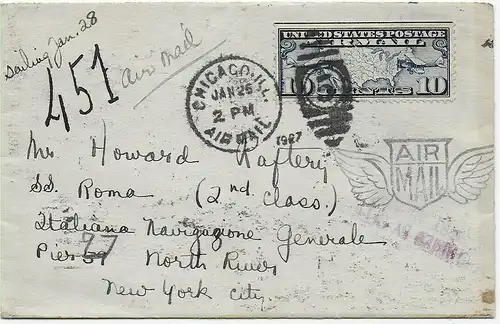 Sailing Jan. 28
451
air mail
CHICAGO, ILL.
JAN 25
2 PM
1927
AIR MAIL
UNITED STATES POSTAGE
AIR MAIL
10 CENTS 10
AIR
MAIL
Mr Howard Raftery
SS. Roma (2nd class.)
Italiana Navigazione Generale
Pier 57 77 North River
New York City.